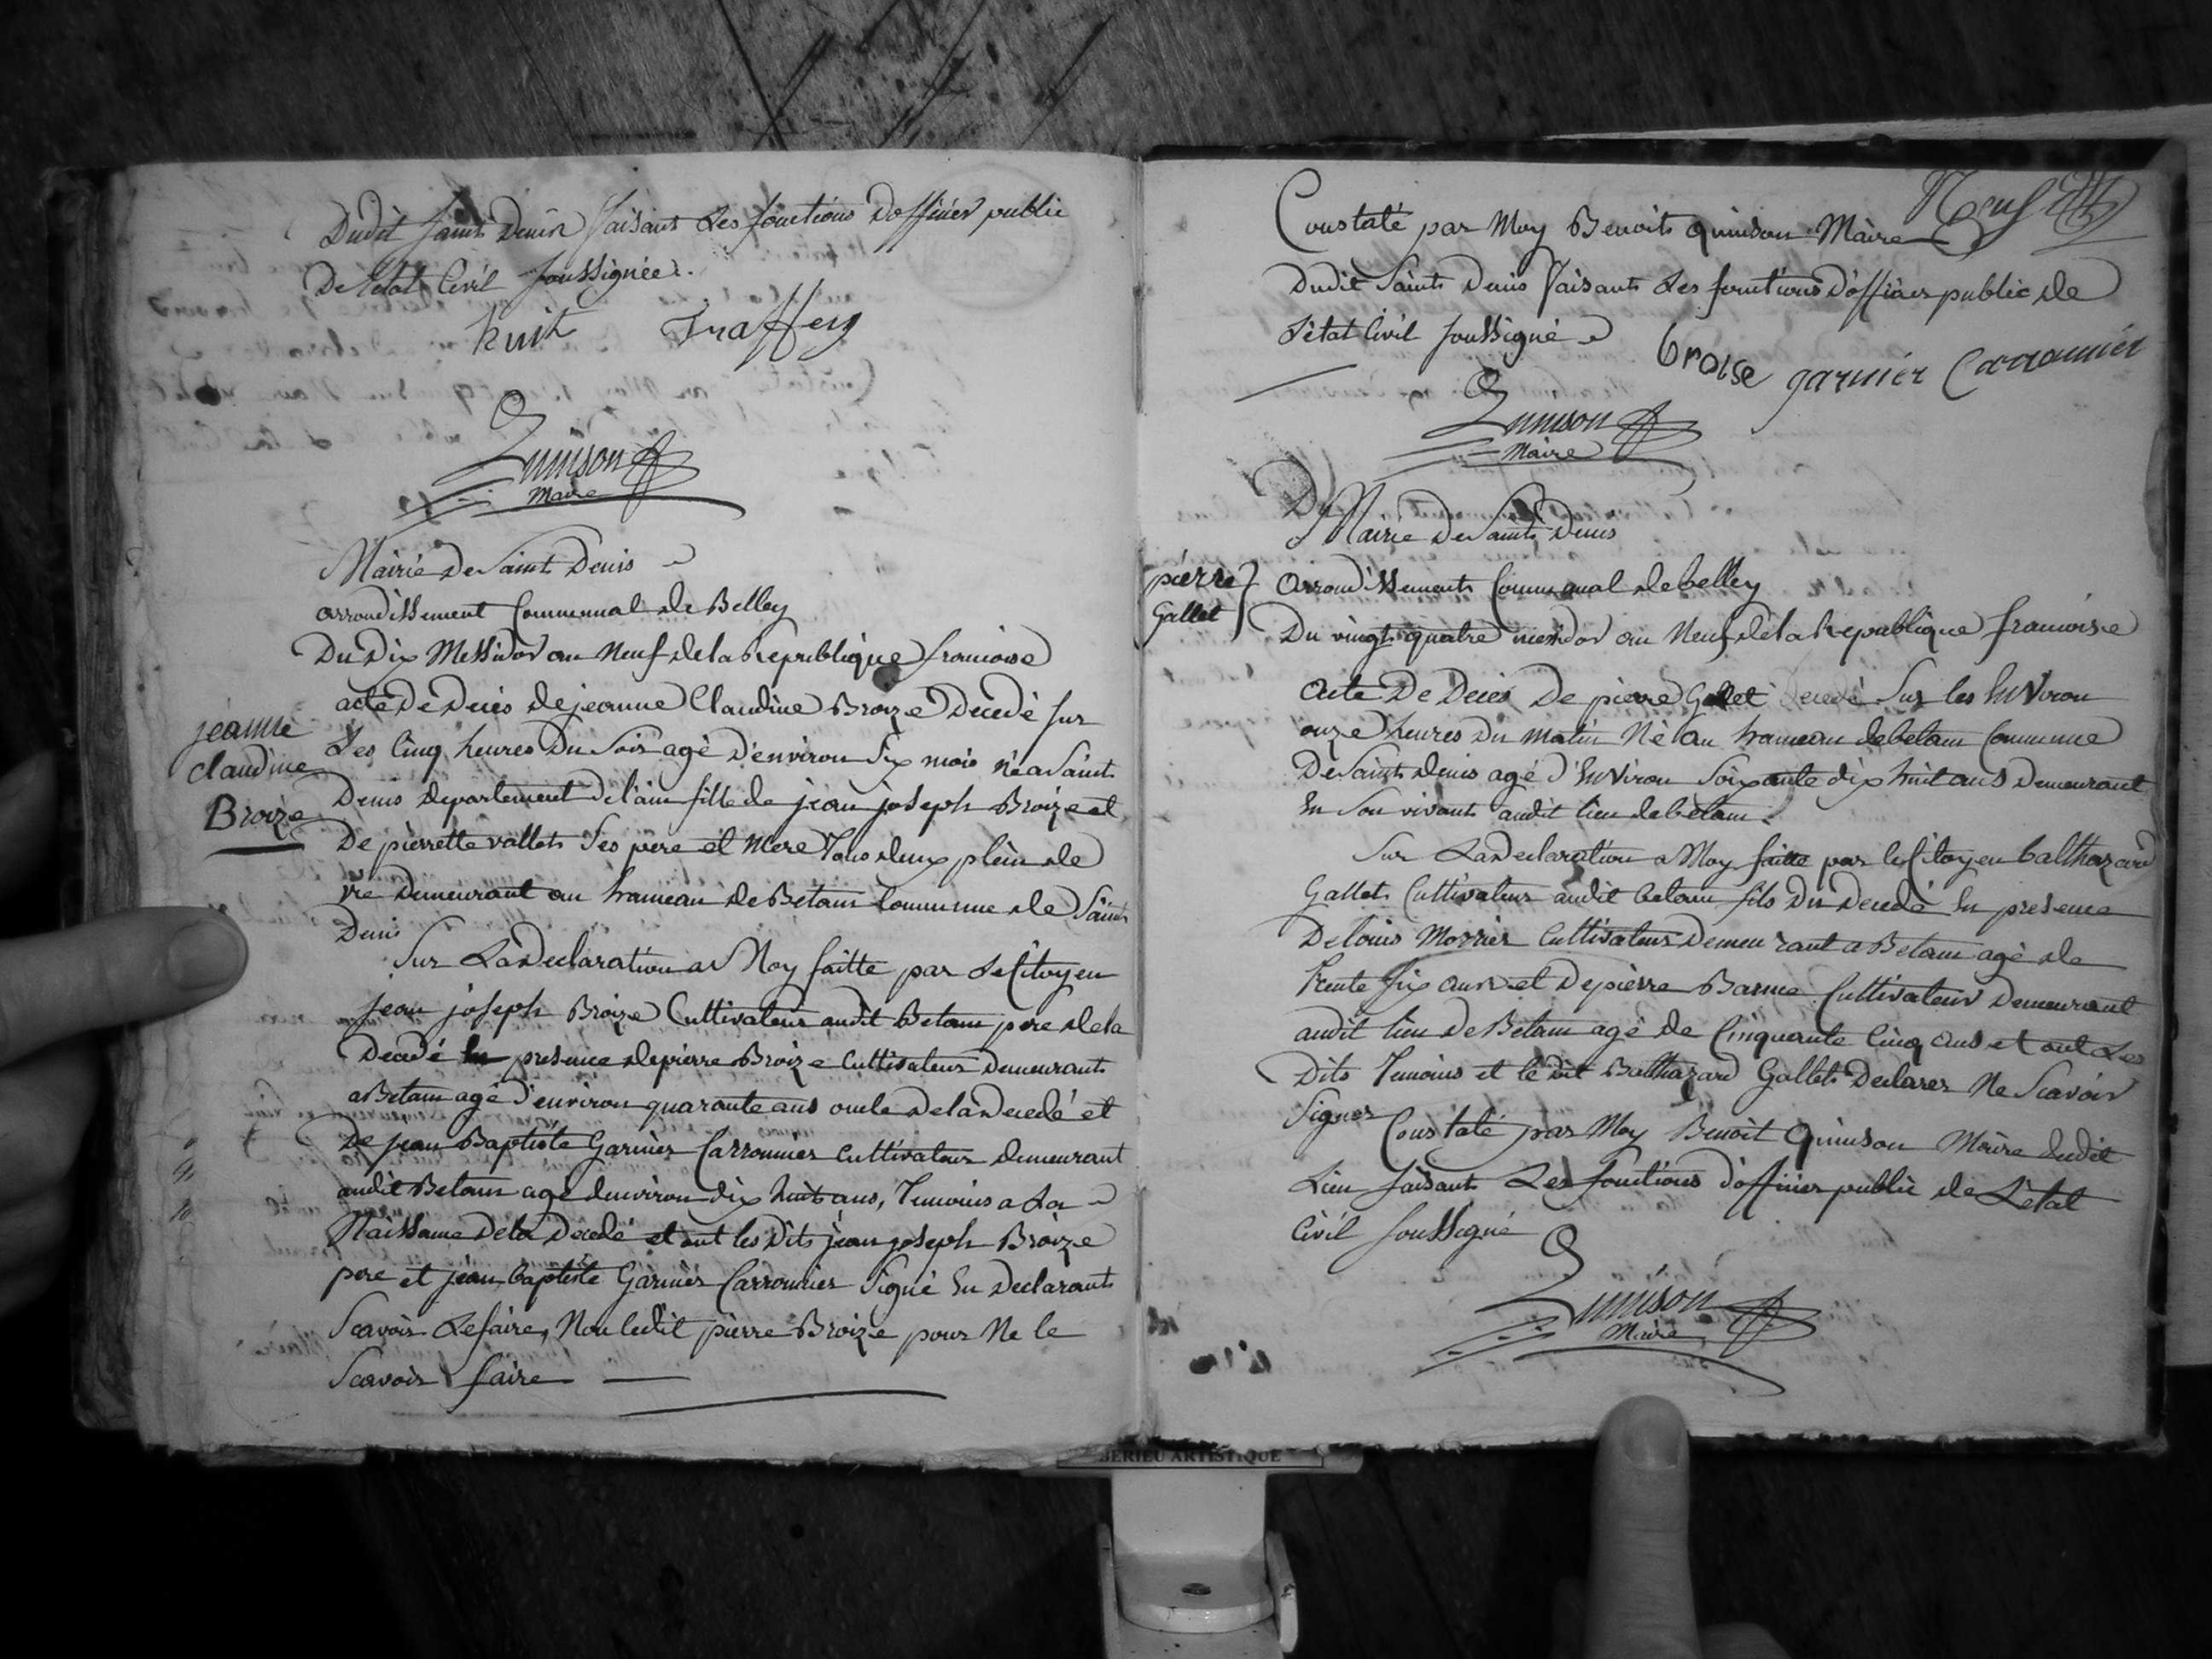 Dudit saint Denis faisant Les fonctions D'officier public
De l'état Civil soussignée.
huit Traffey
Quinson
Maire
Mairie De Saint Denis
arrondissement Communal de Belley
Du Dix Messidor an Neuf de la Republique francoise
acte De Deces de jeanne Claudine Broize Decedé sur
Les Cinq heures Du Soir agé D'environ Six mois né a Saint
Denis departement de l'ain fille de jean joseph Broize et
De pierrette vallet Ses pere et Mere Tous deux plein de
vie demeurant au hameau de Betam Commune de Saint
Denis
jeanne
claudine
Broize
Sur La Declaration a Moy faitte par Le Citoyen
jean joseph Broize Cultivateur audit Betam pere de la
Decedé En presence de pierre Broize Cultivateur Demeurant
a Betam agé D'environ quarante ans oncle De la Decedé et
De jean Baptiste Garnier Carronnier Cultivateur demeurant
audit Betam agé d'environ dix huit ans, Temoins a La
Naissance De la Decedé et ont les Dits jean joseph Broize
pere et jean baptiste Garnier Carronnier Signé En Declarant
Scavoir Le faire, Non ledit pierre Broize pour Ne le
Scavoir faire
Neuf
Constaté par Moy Benoit Quinson Maire
Dudit Saint Denis faisant Les fonctions D'officier public de
L'état Civil soussigné
broise garnier Carronnier
Quinson
Maire
Mairie De Saint Denis
pierre
Gallet
arrondissement Communal de belley
Du vingt quatre messidor an Neuf de la Republique francoise
acte De Deces De pierre Gallet Decedé Sur les Environ
onze heures Du matin Né au hameau de betam Commune
De Saint denis agé d'Environ Soixante dix huit ans Demeurant
En Son vivant audit lieu de betam.
Sur La Declaration a Moy faitte par le Citoyen balthazard
Gallet Cultivateur audit betam fils Du Decedé En presence
De louis Morrier Cultivateur Demeurant a Betam agé de
trente six ans et De pierre Barme Cultivateur Demeurant
audit lieu De Betam agé de Cinquante Cinq ans et ont Les
Dits Temoins et le dit Balthazard Gallet Declarer Ne Scavoir
Signer
Constaté par Moy Benoit Quinson Maire dudit
Lieu faisant Les fonctions d'officier public de L'etat
Civil soussigné
Quinson
Maire
SERIEU ARTISTIQUE